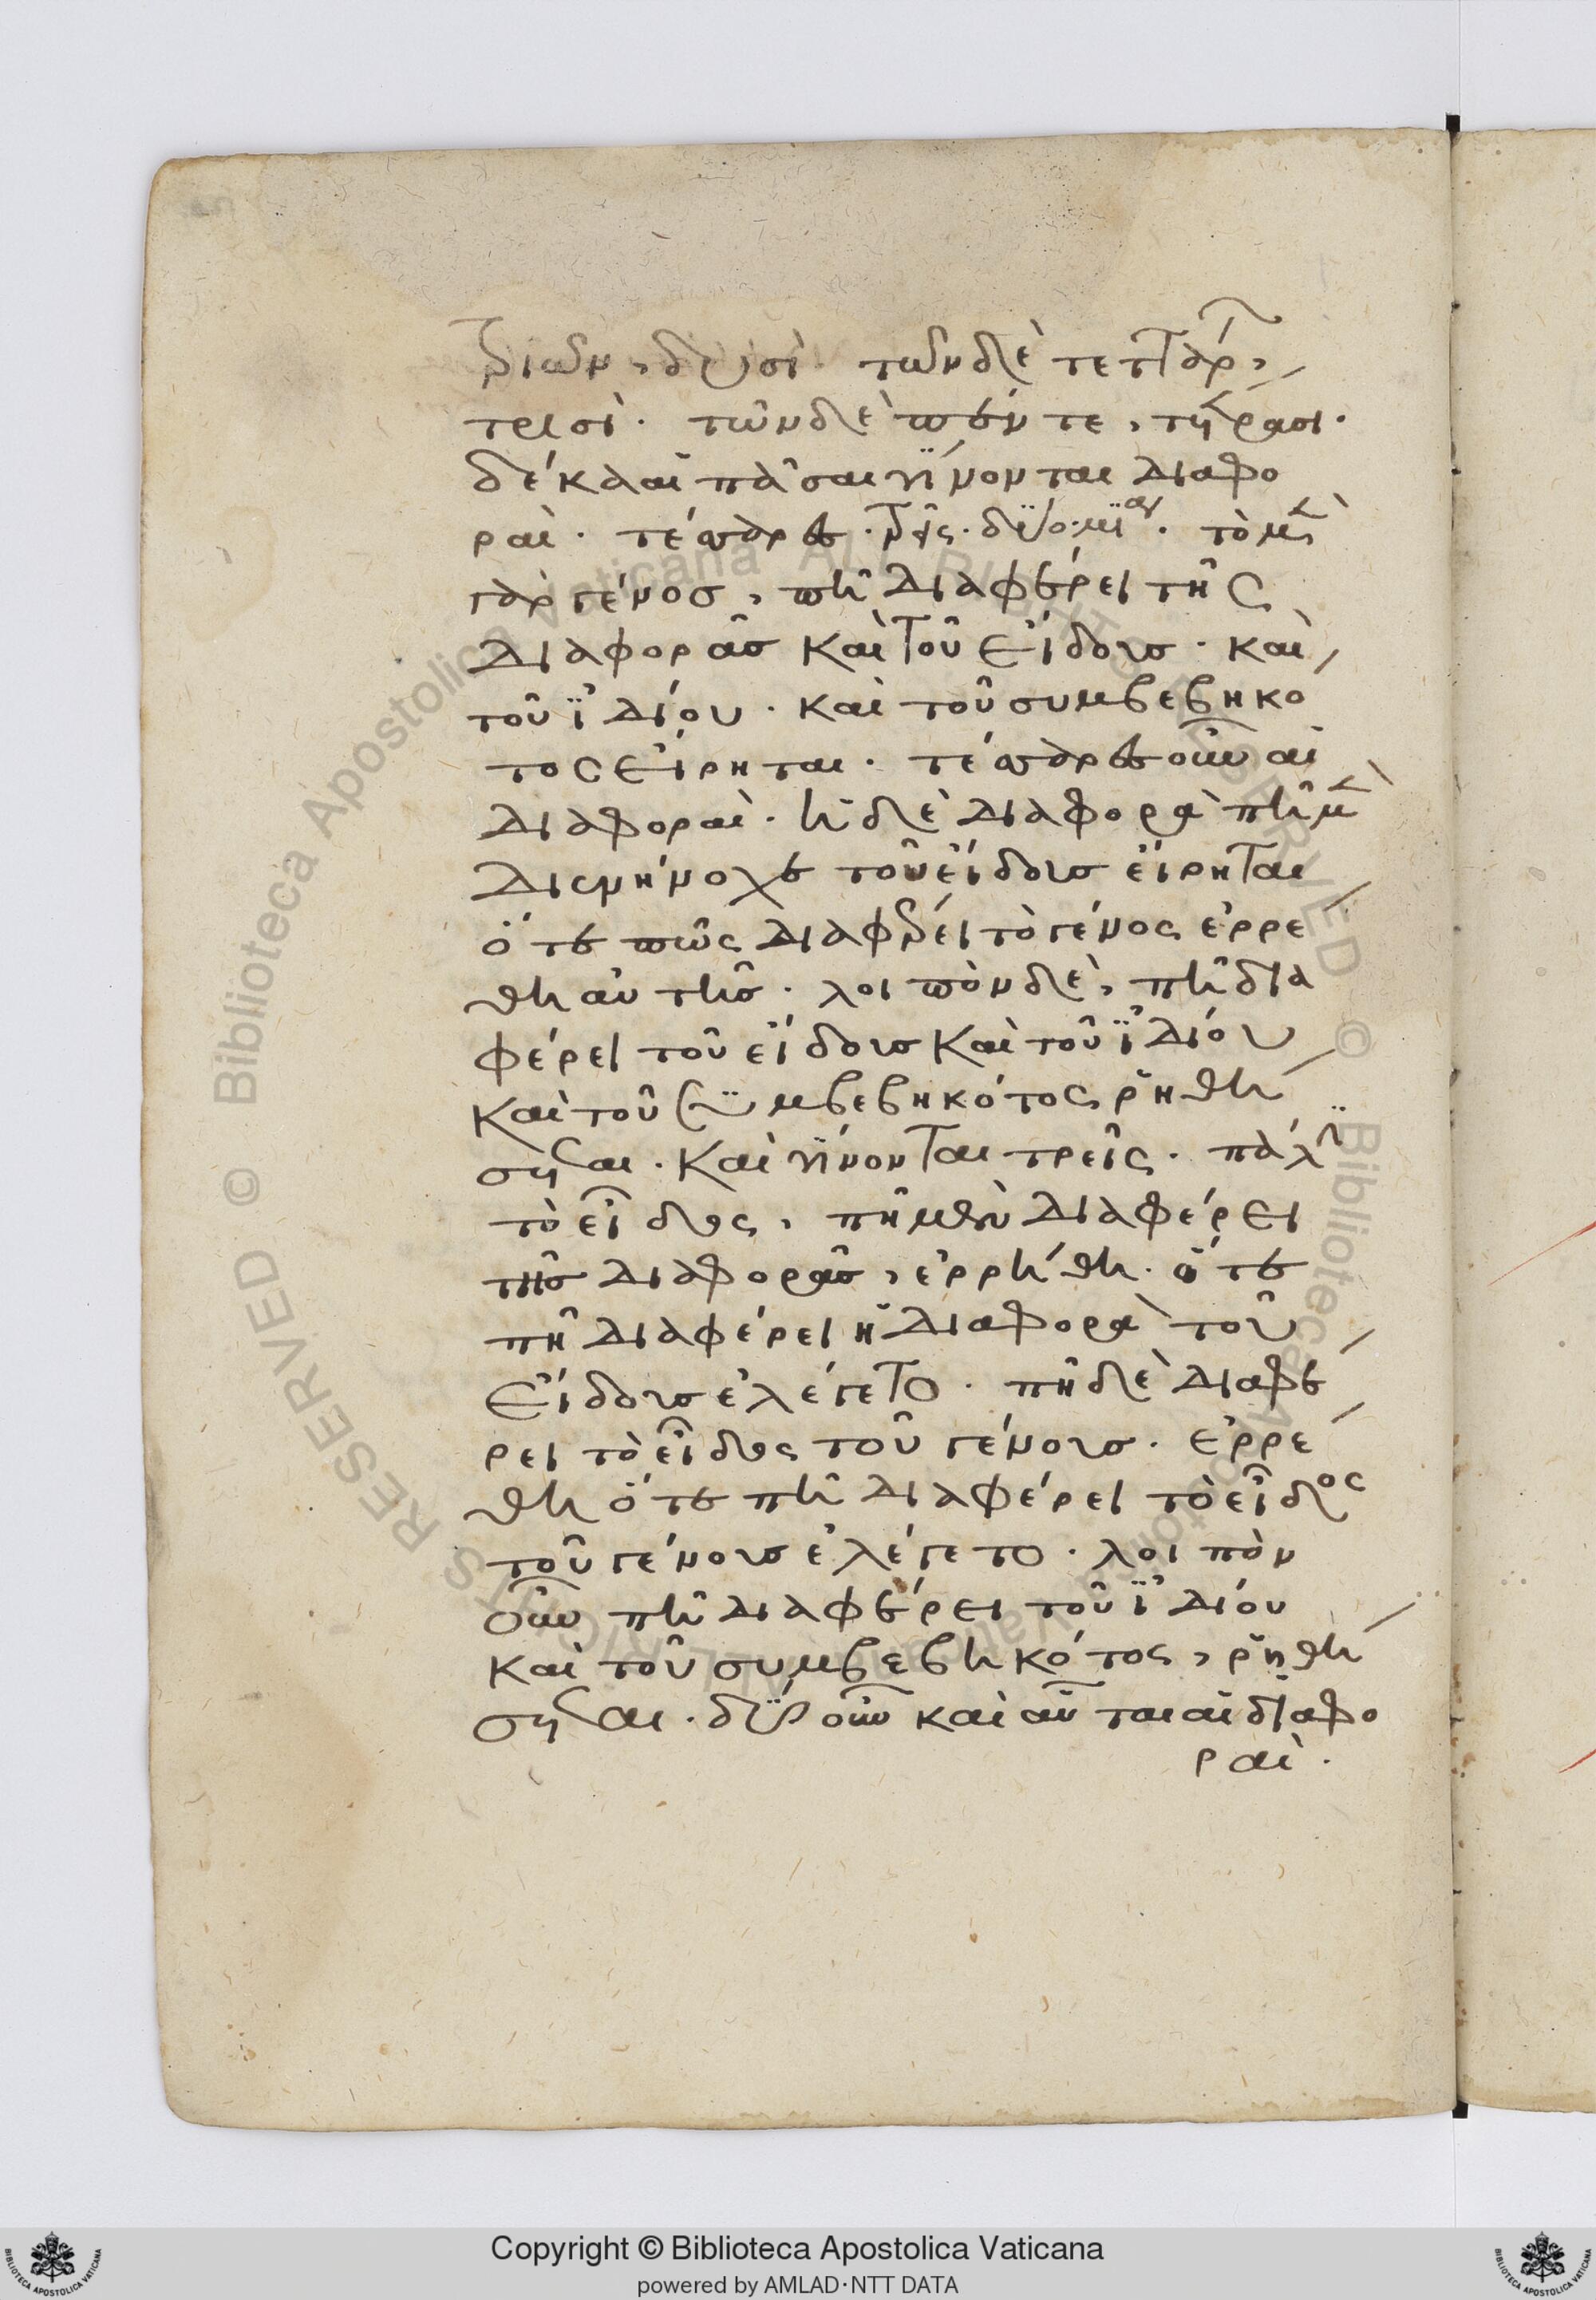 τριῶν, δυσὶ· τῶν δὲ τεττάρων,
τρισὶ· τῶν δὲ πέντε, τέτρασι·
δέκα αἱ πᾶσαι γίνονται διαφο
ραὶ· τέσσαρες· τρεῖς· δύο· μία· τὸ μὲν
γὰρ γένος, πῆ διαφέρει τῆς
διαφορᾶς καὶ τοῦ εἴδους· καὶ
τοῦ ἰδίου· καὶ τοῦ συμβεβηκό
τος εἴρηται· τέσσαρες οὖν αἱ
διαφοραὶ· ἡ δὲ διαφορὰ πῆ μὲν
διενήνοχε τοῦ εἴδους εἴρηται
ὅτε πῶς διαφέρει τὸ γένος ἐρρέ
θη αὐτῆς· λοιπὸν δὲ, πῆ δια
φέρει τοῦ εἴδους καὶ τοῦ ἰδίου
καὶ τοῦ συμβεβηκότος, ῥηθή
σεται· καὶ γίνονται τρεῖς· πάλιν
τὸ εἶδος, πῆ μὲν διαφέρει
τῆς διαφορᾶς, ἐρρήθη· ὅτε
πῆ διαφέρει ἡ διαφορὰ τοῦ
εἴδους ἐλέγετο· πῆ δὲ διαφέ
ρει τὸ εἶδος τοῦ γένους· ἐρρέ
θη ὅτε πῆ διαφέρει τὸ εἶδος
τοῦ γένους ἐλέγετο· λοιπὸν
οὖν πῆ διαφέρει τοῦ ἰδίου
καὶ τοῦ συμβεβηκότος, ῥηθή
σεται· δύο οὖν καὶ αὗται αἱ διαφο
ραὶ·
Copyright © Biblioteca Apostolica Vaticana
powered by AMLAD·NTT DATA